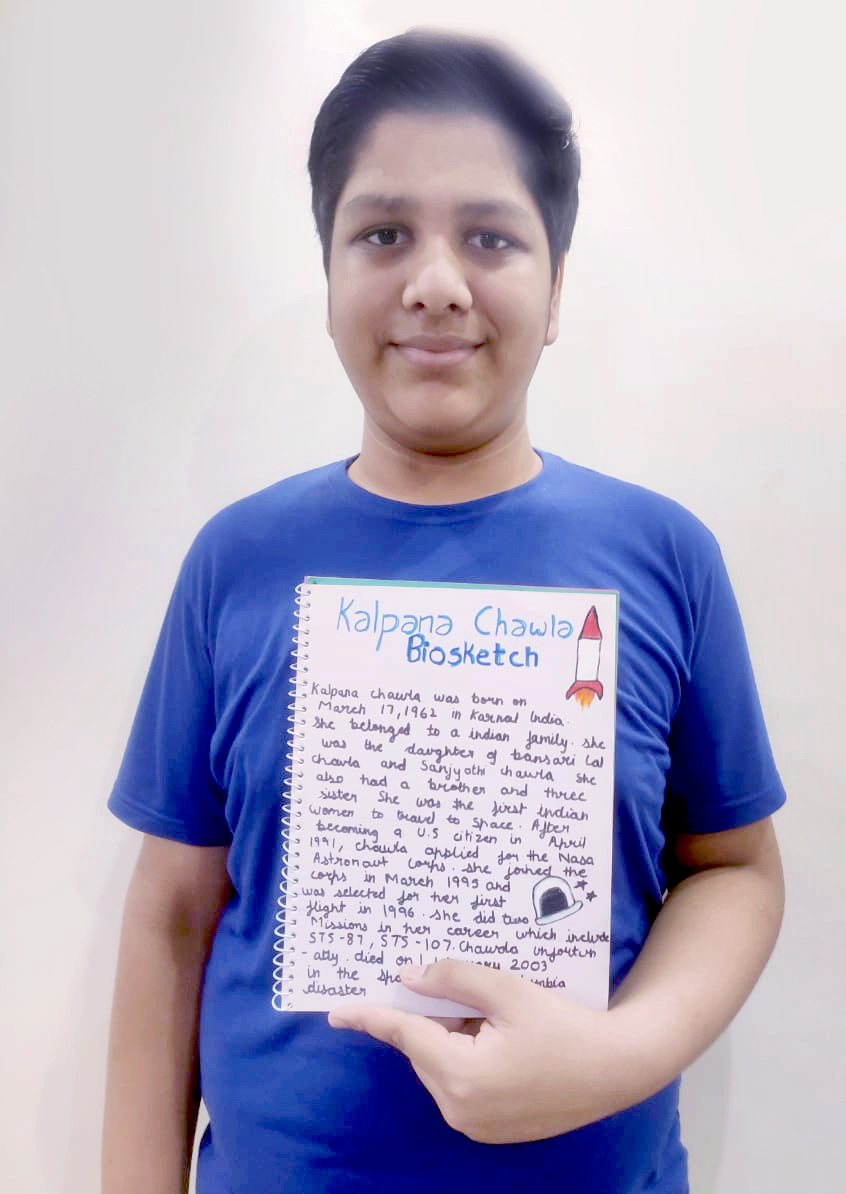 Kalpana Chawla
Biosketch
Kalpana chawla was born on
March 17, 1962 in Karnal India.
She belonged to a indian family. she
was the daughter of bansari lal
chawla and Sanjyothi chawla she
also had a brother and three
sister She was the first indian
women to travel to space. After
becoming a U.S citizen in April
1991, chawla applied for the Nasa
Astronaut corps. she joined the
corps in March 1995 and
was selected for her first
flight in 1996. she did two
Missions in her career which include
STS-87, STS-107. Chawla unfortun
-atly. died on 1 2003
in the
disaster